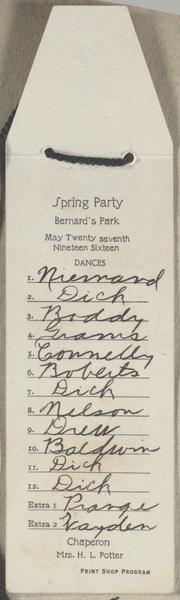 Spring Party
Bernard's Park
May Twenty seventh
Nineteen Sixteen
DANCES
1. Niemand
2. Dick
3. Boddy
4. Grams
5. Connelly
6. Roberts
7. Dick
8. Nelson
9. Drew
10. Baldwin
11. Dick
12. Dick
Extra 1 Prange
Extra 2 Hayden
Chaperon
Mrs. H. L. Potter
PRINT SHOP PROGRAM